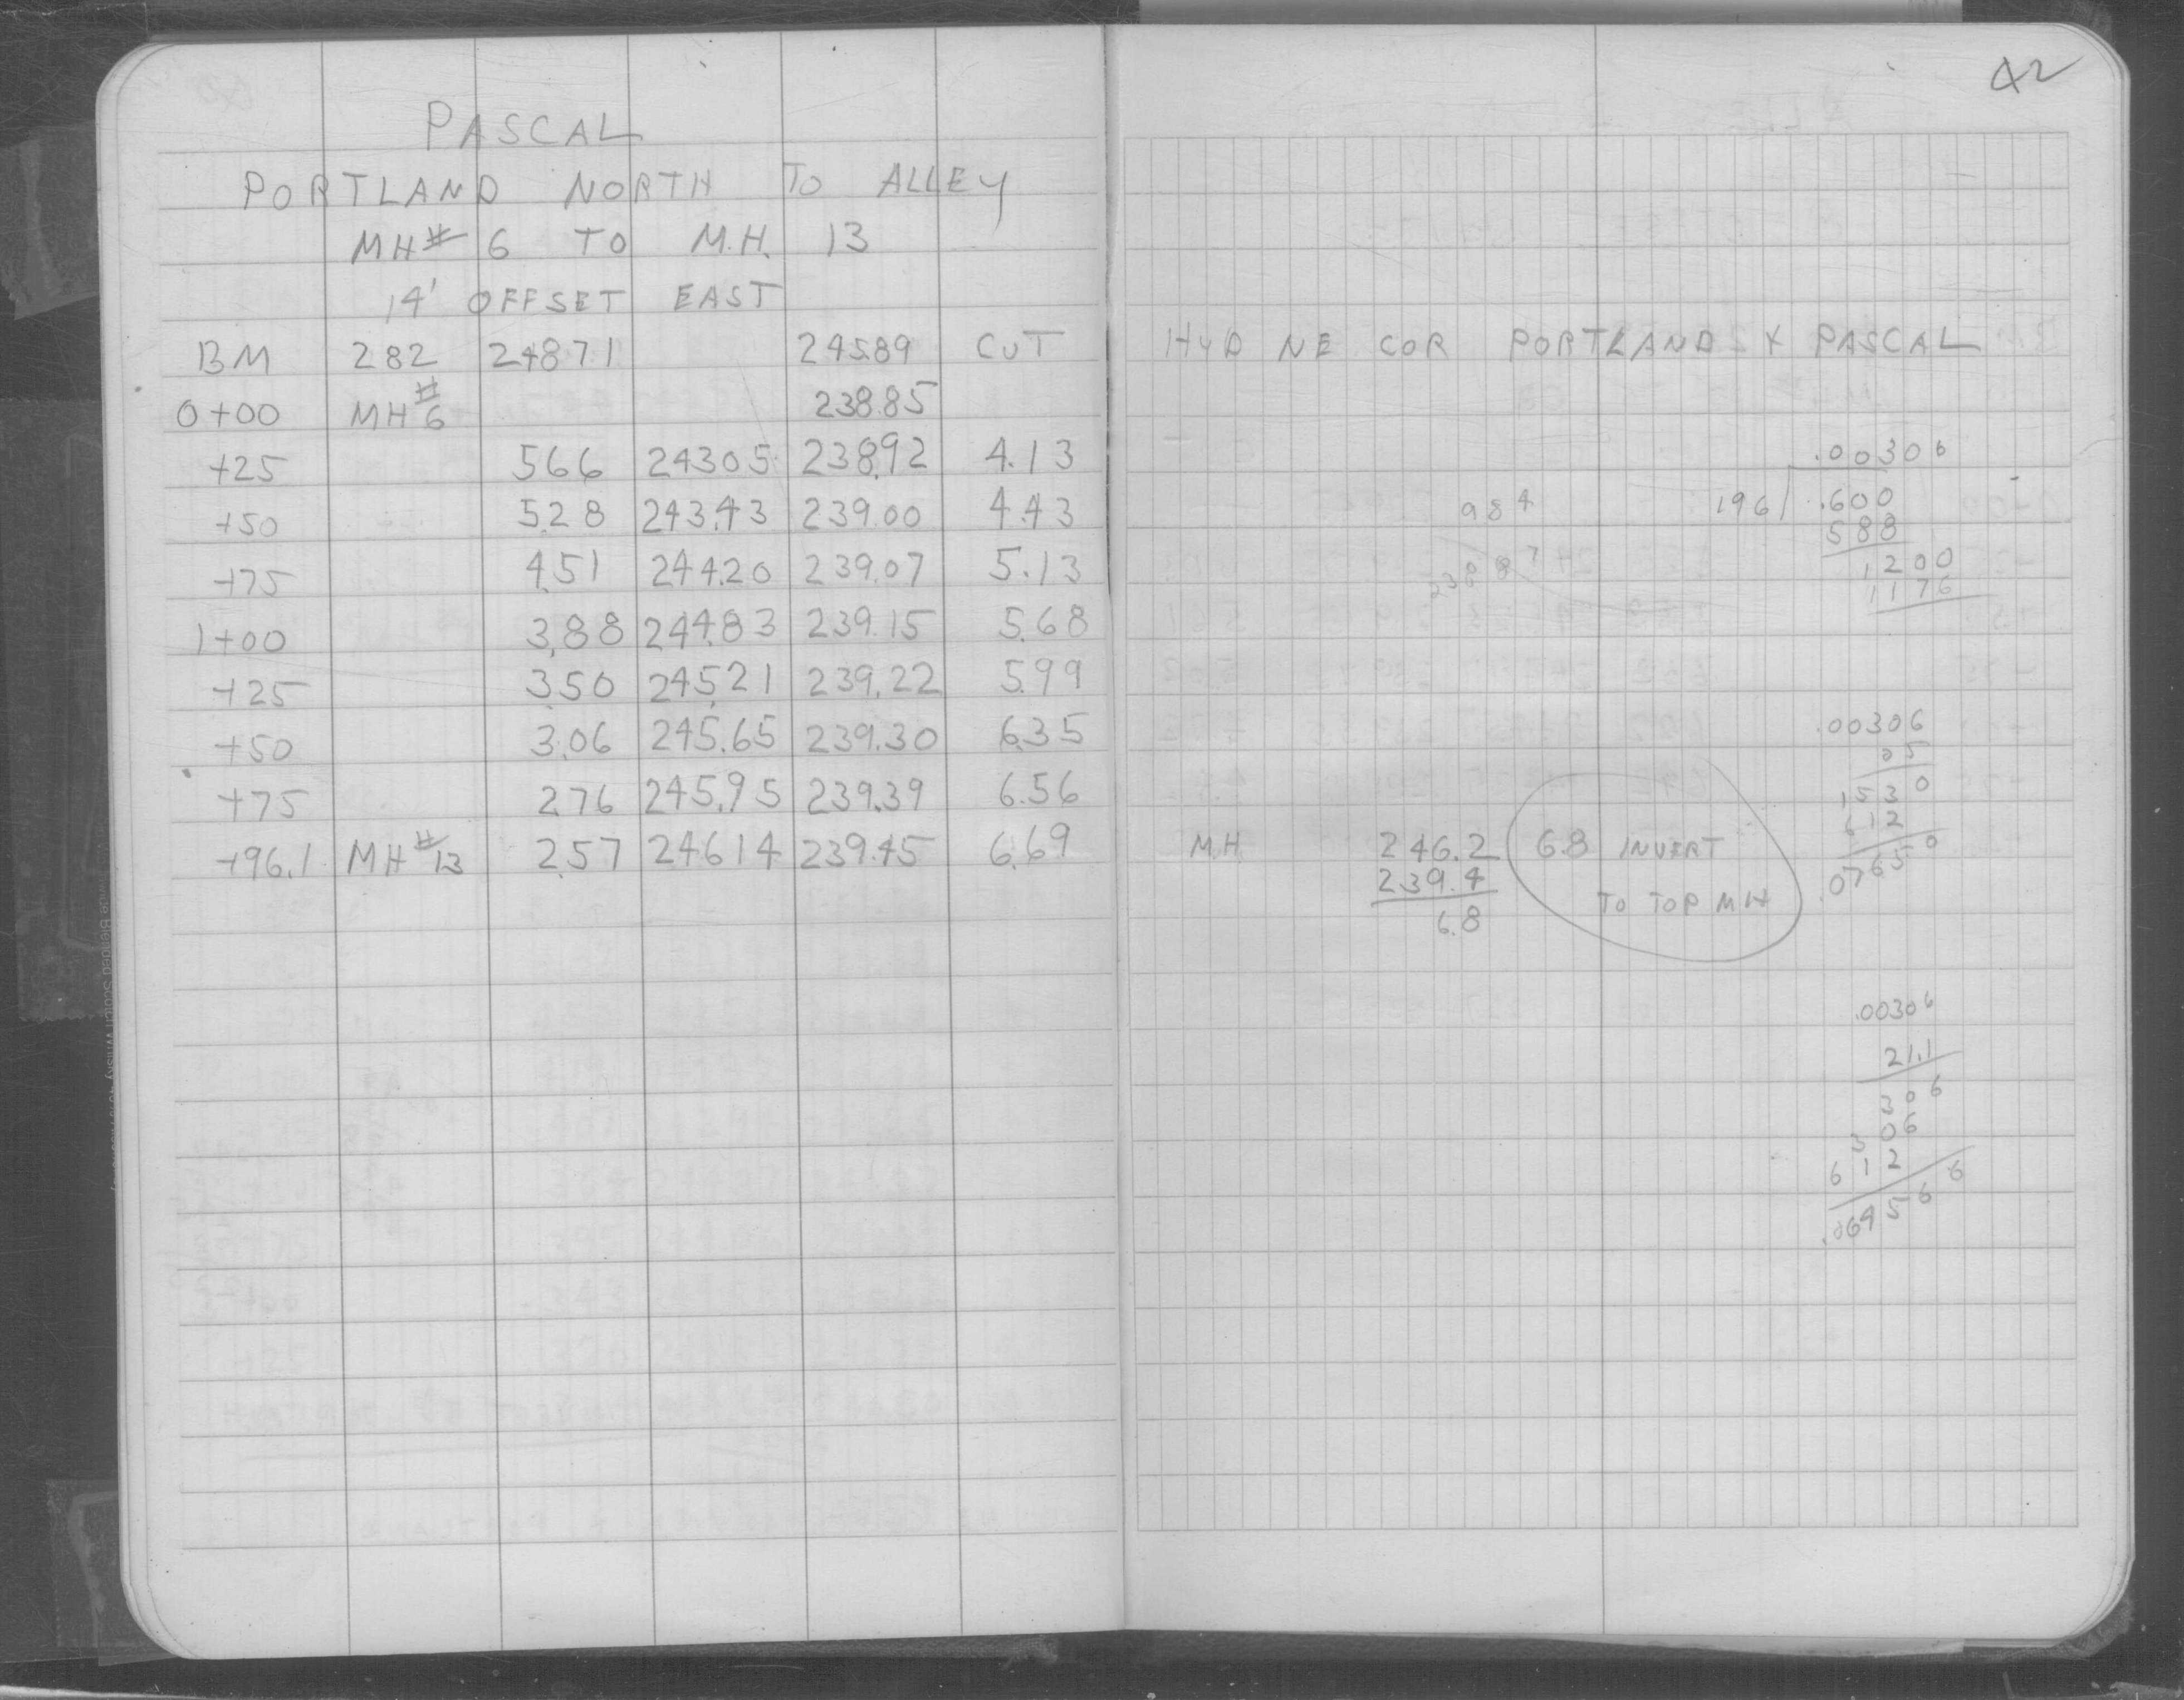 42
PASCAL
PORTLAND NORTH TO ALLEY
MH# 6 TO M.H. 13
14' OFFSET EAST
BM 282 24871 245.89 CUT
0+00 MH#6 238.85
+25 566 24305 238.92 4.13
+50 5.28 243.43 239.00 4.43
+75 4.51 244.20 239.07 5.13
1+00 3.88 244.83 239.15 5.68
+25 3.50 245.21 239.22 5.99
+50 3.06 245.65 239.30 6.35
+75 276 245.95 239.39 6.56
+96.1 MH#13 2.57 24614 239.45 6.69
HYD NE COR PORTLAND & PASCAL
.00306
196 .600
588
1200
1176
984
238 87
.00306
05
1530
612
.07650
MH 246.2 6.8 INVERT
239.4 TO TOP MH
6.8
.00306
21.1
306
306
612
.064566